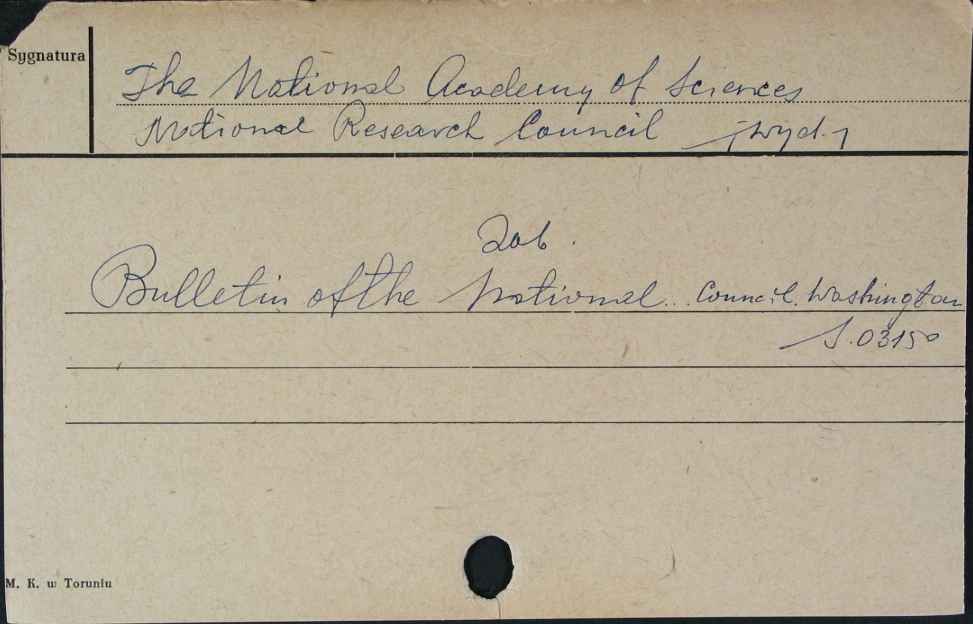 Sygnatura
The National Academy of Sciences
National Research Council /wyd./
Zob.
Bulletin of the National.. Council. Washington
S.03150
M. K. w Toruniu